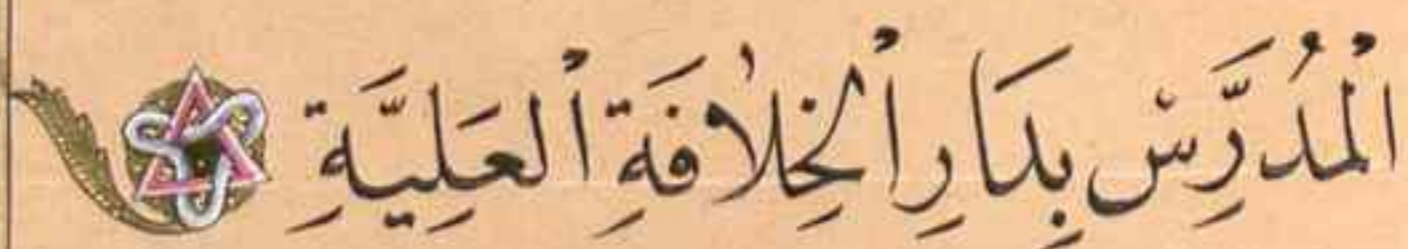 اَلْمُدَرِّسْ بِدَارِ اْلخِلاٰفَةِ اْلعَلِيَّةِ